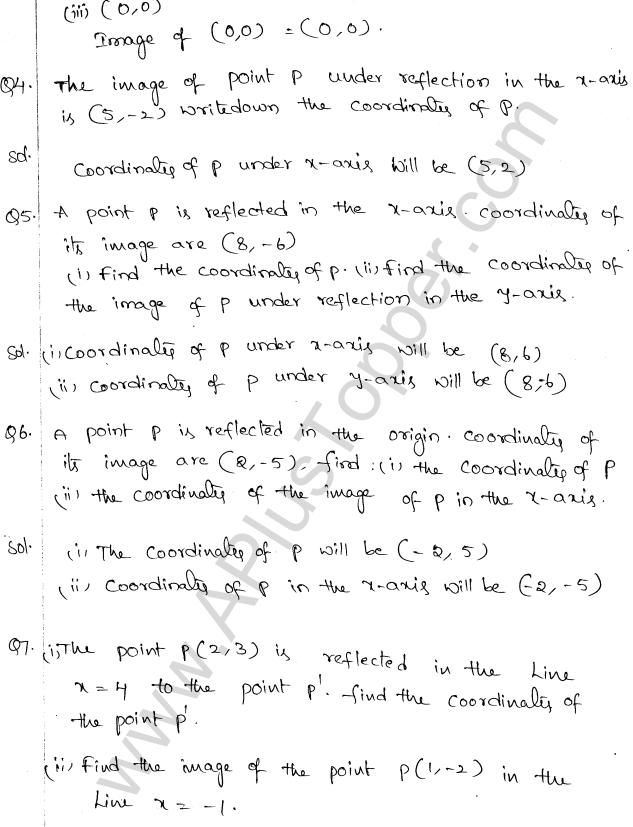 (iii) (0,0)
Image of (0,0) = (0,0).
Q4. The image of point P under reflection in the x-axis
is (5,-2) writedown the coordinates of P.
Sol.
Coordinates of P under x-axis will be (5,2)
Q5. A point P is reflected in the x-axis. coordinates of
its image are (8,-6)
(i) find the coordinates of P. (ii) find the coordinates of
the image of P under reflection in the y-axis.
Sol. (i) Coordinates of P under x-axis will be (8,6)
(ii) coordinates of P under y-axis will be (8,-6)
Q6. A point P is reflected in the origin. coordinates of
its image are (2,-5). find : (i) the coordinates of P
(ii) the coordinates of the image of P in the x-axis.
Sol. (i) The coordinates of P will be (-2,5)
(ii) Coordinates of P in the x-axis will be (-2,-5)
Q7. (i) The point P(2,3) is reflected in the Line
x=4 to the point P'. find the coordinates of
the point P'.
(ii) Find the image of the point P(1,-2) in the
Line x = -1.
www.APlusTopper.com